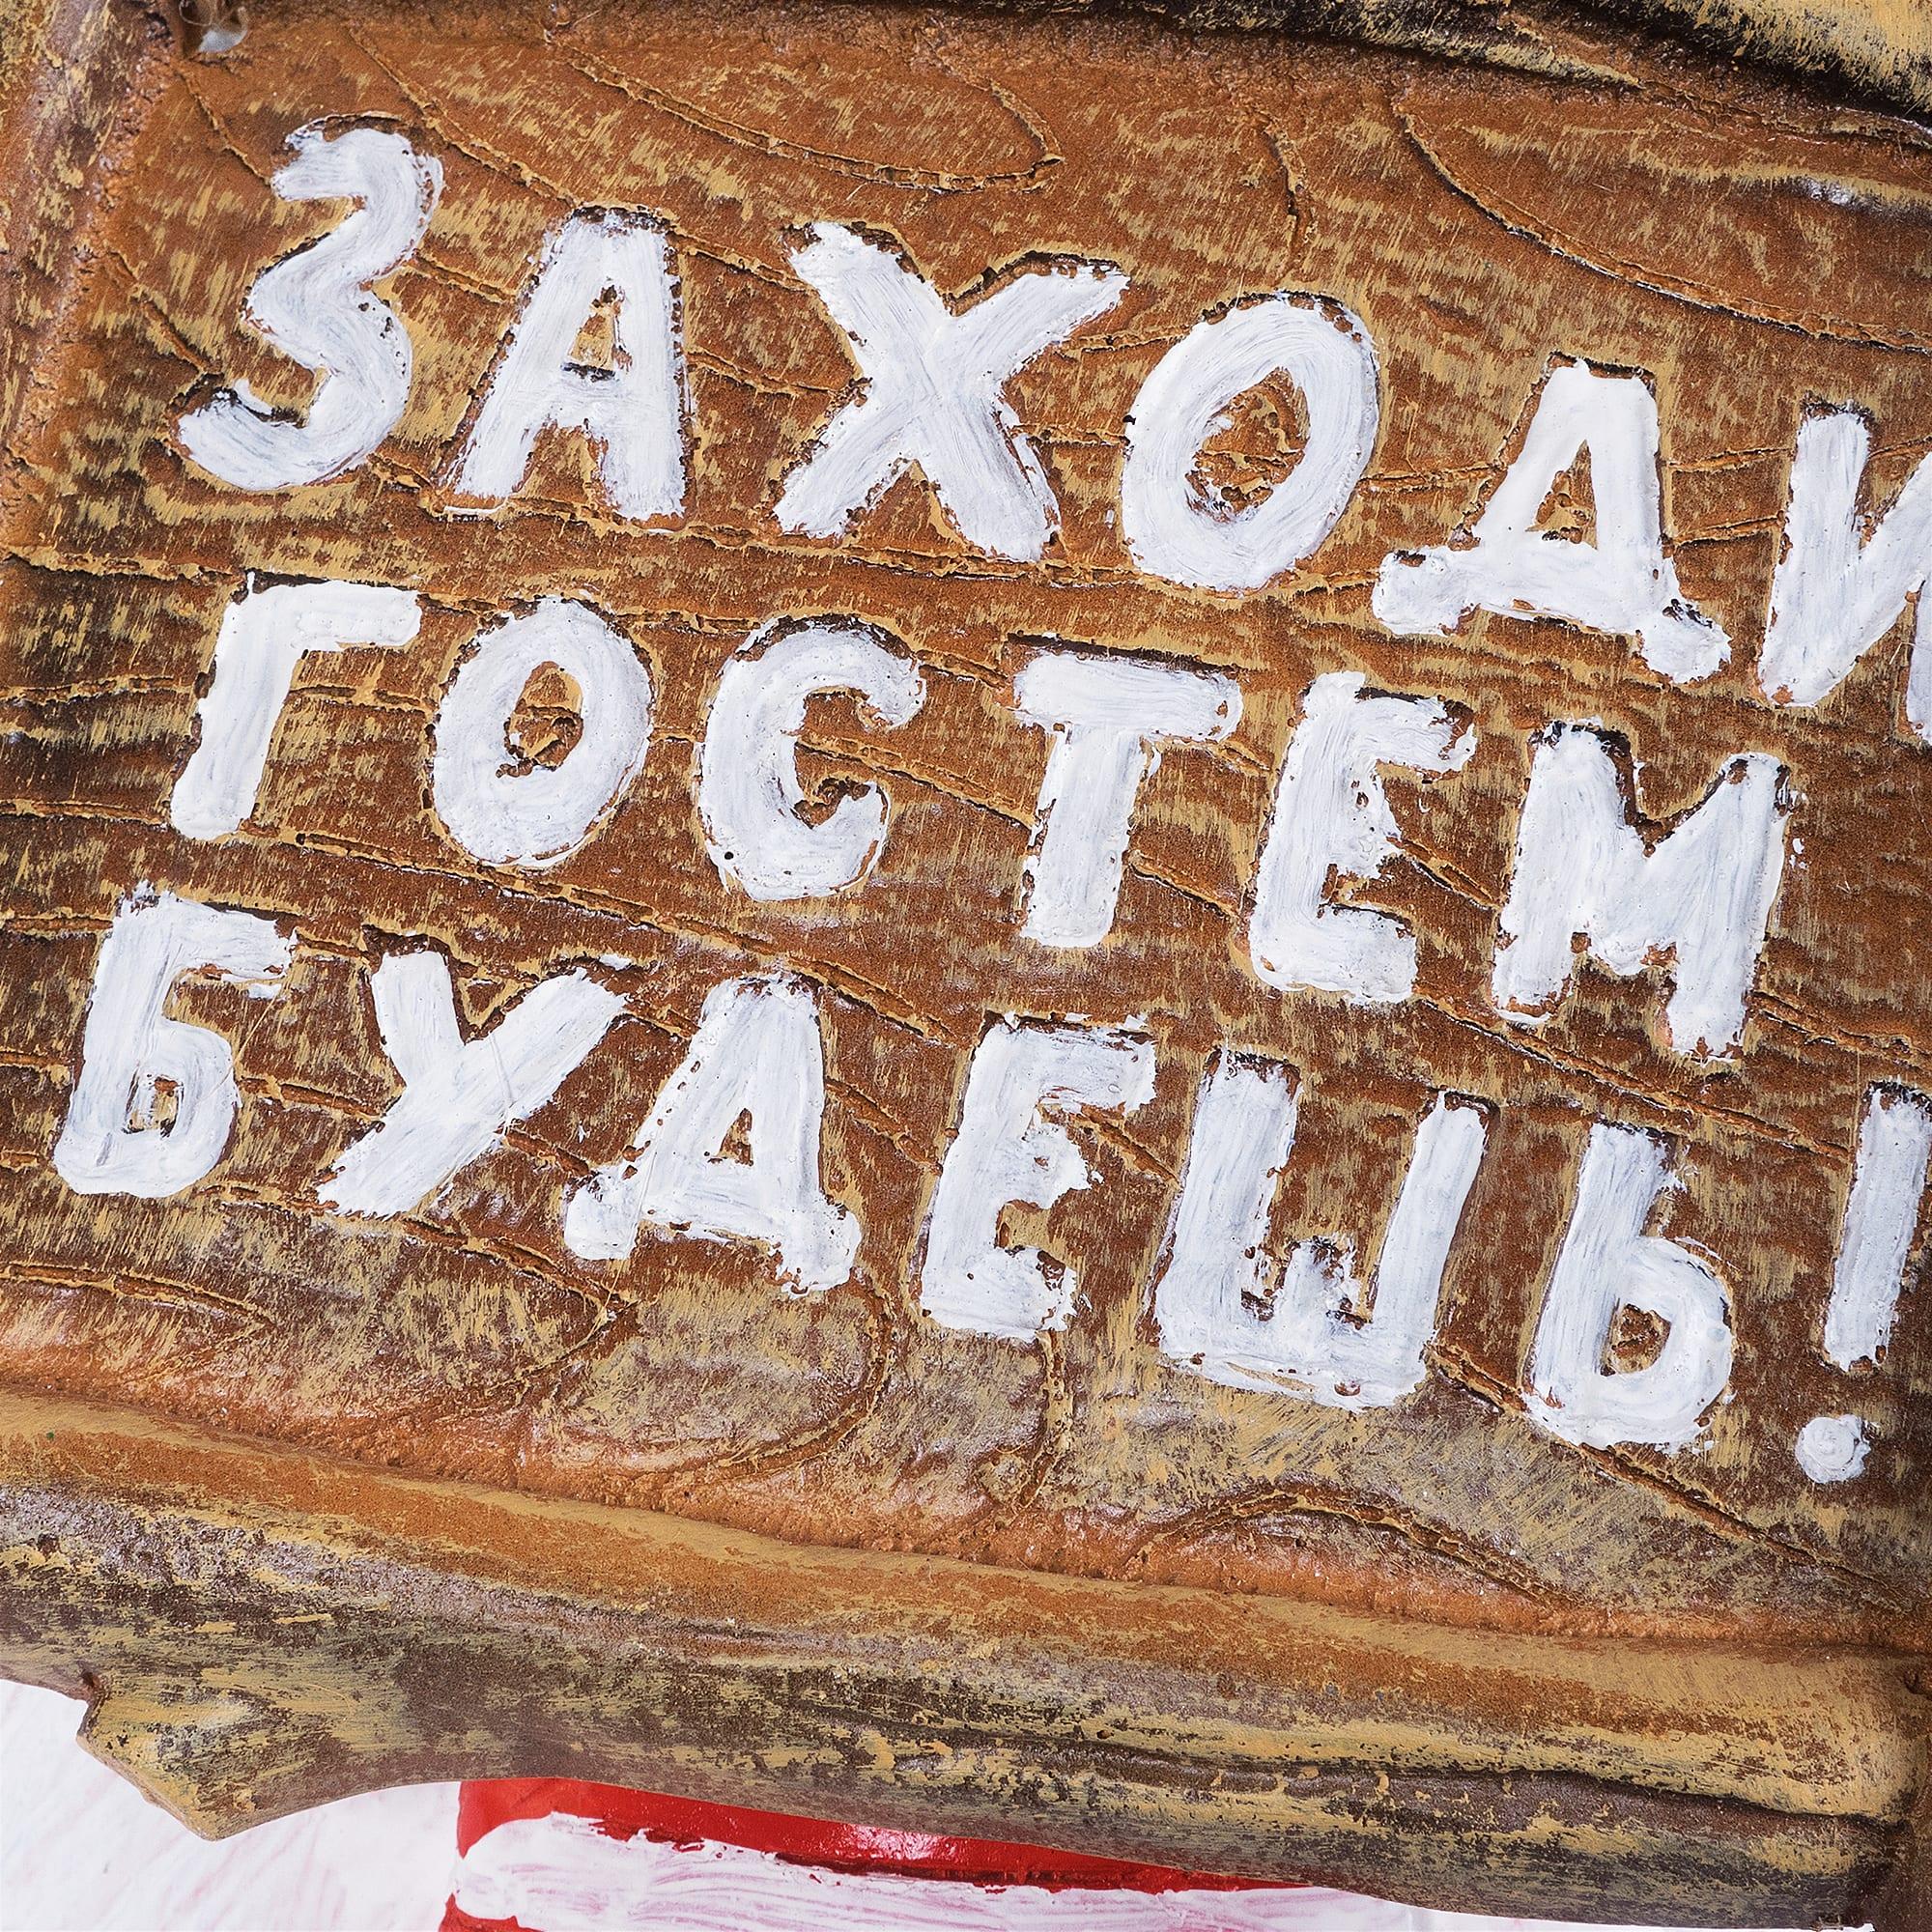 ЗАХОДИ
ГОСТЕМ
БУДЕШЬ!